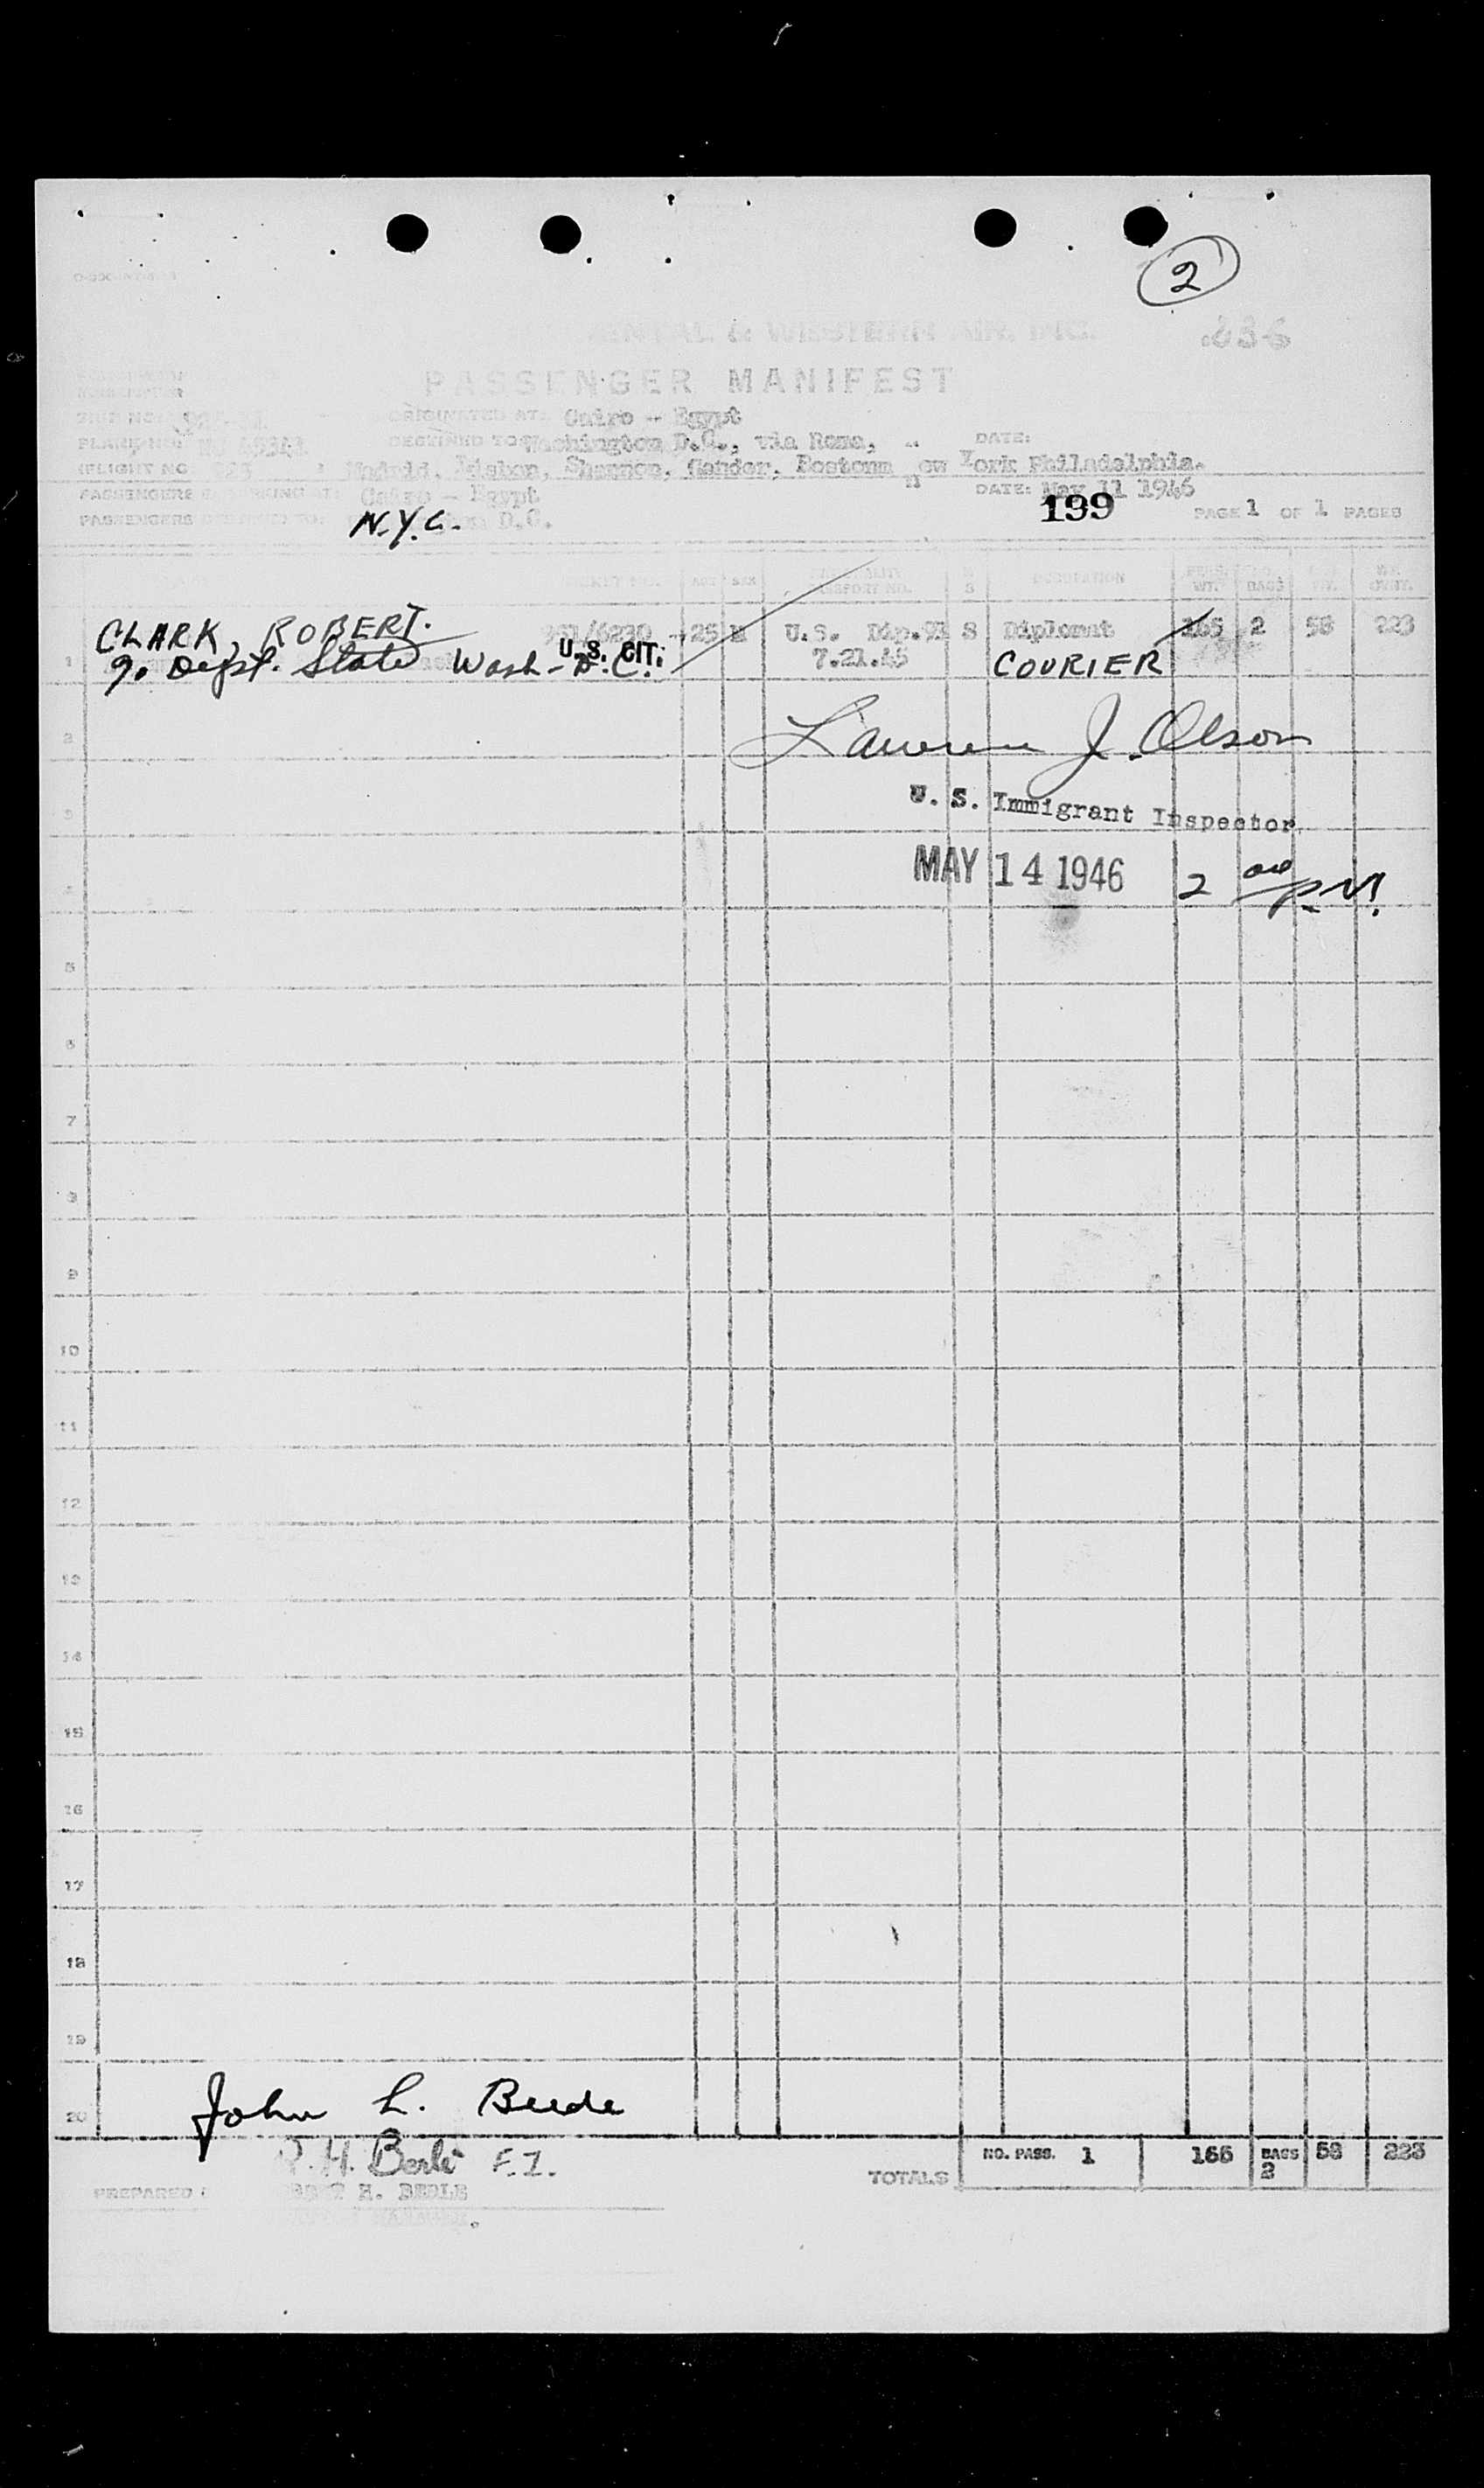 2
ENTAL & WESTERN AIR, INC.
836
PASSENGER MANIFEST
SHIP NO:
ORIGINATED AT: Cairo - Egypt
PLANE NO: NC 45343
DESTINED TO Washington D.C., via Rome,
DATE:
FLIGHT NO
Madrid, Lisbon, Shannon, Gander, Boston ew York Philadelphia.
PASSENGERS EMBARKING AT: Cairo - Egypt
DATE: May 11 1946
PASSENGERS DESTINED TO: D.C.
N.Y.C.
199
PAGE 1 OF 1 PAGES
TICKET NO. AGE SEX PASSPORT NO. M S OCCUPATION WT. BAGS WT.
CLARK, ROBERT. /6230 25 M U.S. Dip. S Diplomat 165 2 58 223
1 Dept. State Wash-D.C. U.S. CIT. 7.21.45 COURIER
2 J. Olson
3 U. S. Immigrant Inspector
4 MAY 14 1946 2 00 P.M.
5
6
7
8
9
10
11
12
13
14
15
16
17
18
19
20 John L. Beede
TOTALS NO. PASS. 1 165 BAGS 2 58 223
H. F.I.
PREPARED H. BERLE